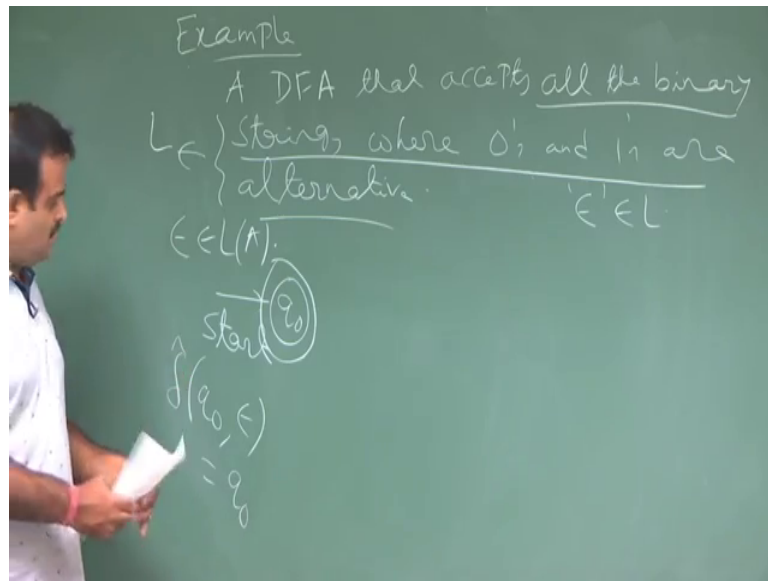 Example
A DFA that accepts all the binary
L ∈ { strings where 0's and 1's are
alternative.
'ε' ∈ L.
ε ∈ L(A).
start q₀
δ̂(q₀, ε)
= q₀